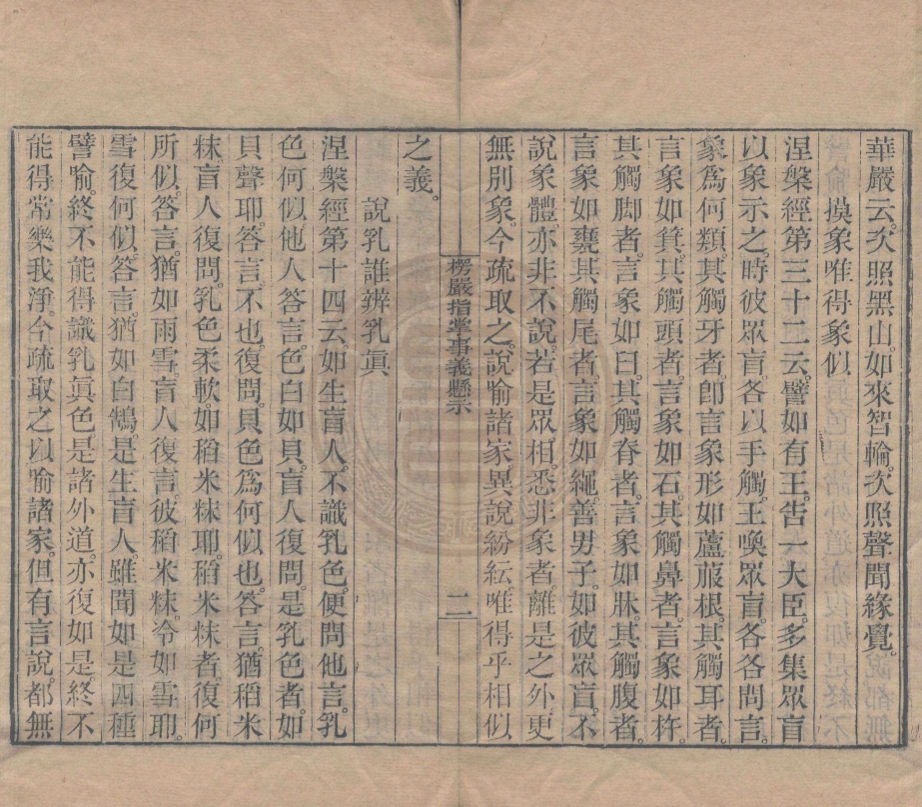 華嚴云。次照黑山。如來智輪。次照聲聞緣覺。
摸象唯得象似
涅槃經第三十二云。譬如有王。告一大臣。多集眾盲
以象示之。時彼眾盲。各以手觸。王喚眾盲。各各問言。
象爲何類。其觸牙者。卽言象形如蘆菔根。其觸耳者。
言象如箕。其觸頭者。言象如石。其觸鼻者。言象如杵。
其觸脚者。言象如臼。其觸脊者。言象如牀。其觸腹者。
言象如甕。其觸尾者。言象如繩。善男子。如彼眾盲。不
說象體。亦非不說。若是眾相。悉非象者。離是之外。更
無別象。今疏取之。說喻諸家異說紛紜。唯得乎相似
楞嚴指掌事義懸示
二
之義。
說乳誰辨乳眞
涅槃經第十四云。如生盲人。不識乳色。便問他言。乳
色何似。他人答言。色白如貝。盲人復問。是乳色者。如
貝聲耶。答言。不也。復問。貝色爲何似也。答言。猶稻米
粖。盲人復問。乳色柔軟如稻米粖耶。稻米粖者。復何
所似。答言。猶如雨雪。盲人復言。彼稻米粖。冷如雪耶。
雪復何似。答言。猶如白鶴。是生盲人。雖聞如是四種
譬喻。終不能得識乳眞色。是諸外道。亦復如是。終不
能得常樂我淨。今疏取之。以喻諸家。但有言說。都無